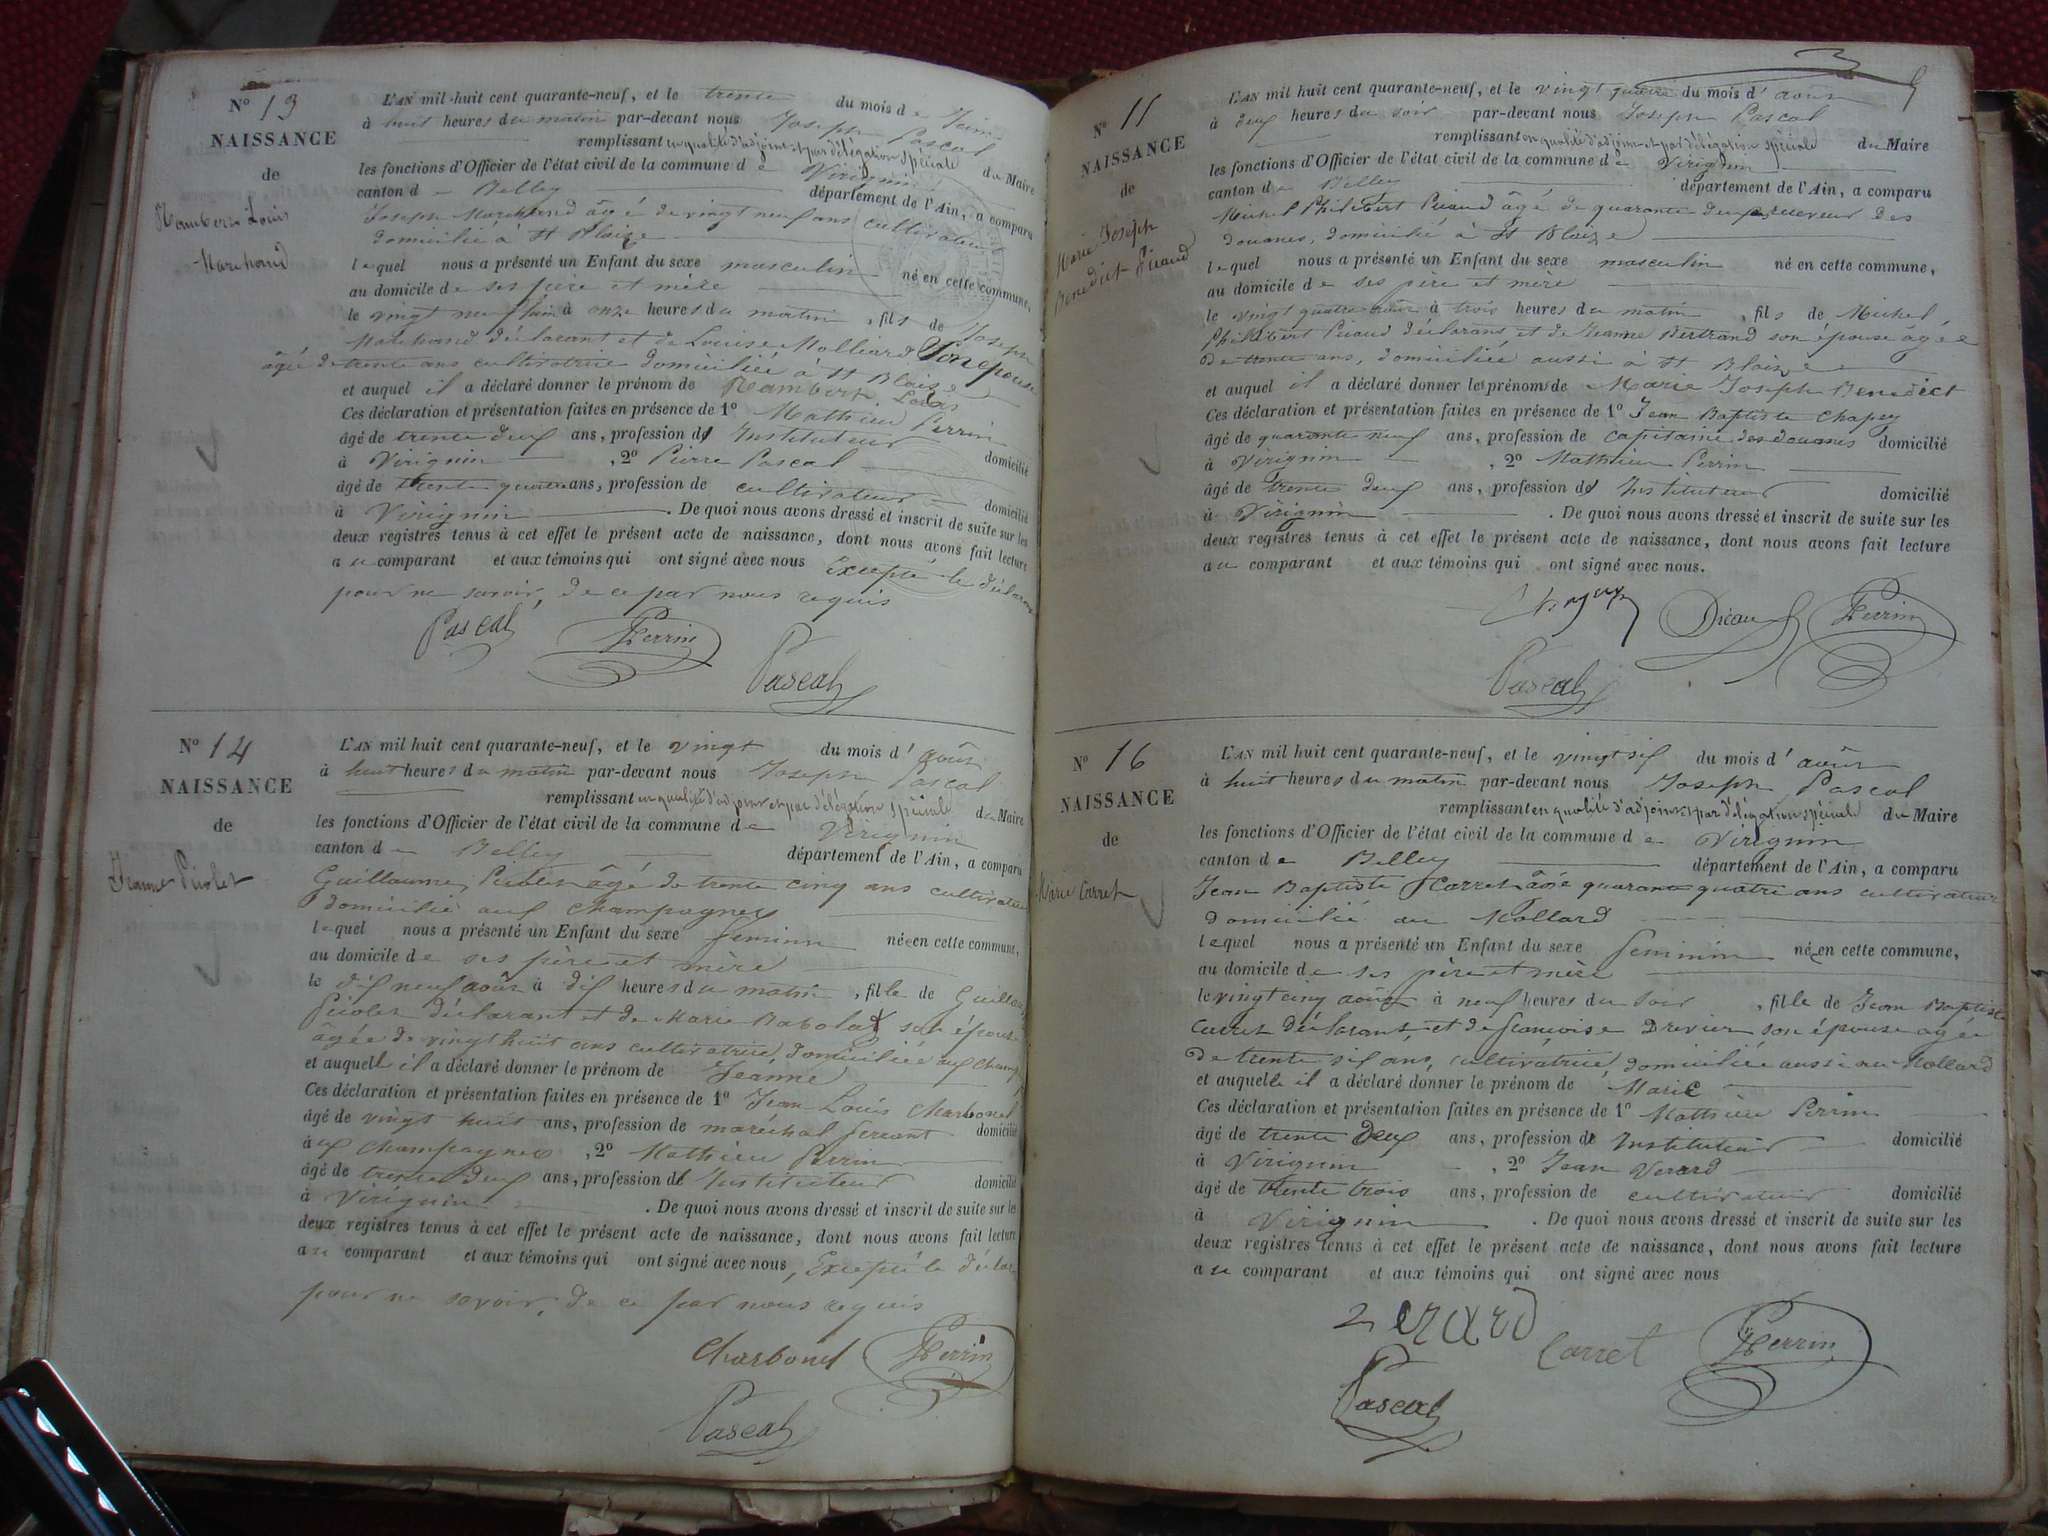 Nº 13
NAISSANCE
de
Rambert Louis
Marchand
L'AN mil-huit cent quarante-neuf, et le trente du mois de Juin
à huit heures du matin par-devant nous Joseph Pascal
remplissant en qualité d'adjoint et par délégation spéciale du Maire
les fonctions d'Officier de l'état civil de la commune de Virignin
canton de Belley département de l'Ain, a comparu
Joseph Marchand âgé de vingt neuf ans cultivateur
domicilié à St Blaize
lequel nous a présenté un Enfant du sexe masculin né en cette commune,
au domicile de ses père et mère
le vingt neuf Juin à onze heures du matin, fils de Joseph
Marchand déclarant et de Louise Molliard Son épouse
âgé de trente ans cultivatrice domiciliée à St Blaize
et auquel il a déclaré donner le prénom de Rambert Louis
Ces déclaration et présentation faites en présence de 1º Mathieu Perrin
âgé de trente deux ans, profession d' Instituteur domicilié
à Virignin, 2º Pierre Pascal
âgé de trente quatre ans, profession de cultivateur domicilié
à Virignin. De quoi nous avons dressé et inscrit de suite sur les
deux registres tenus à cet effet le présent acte de naissance, dont nous avons fait lecture
au comparant et aux témoins qui ont signé avec nous Excepté le déclarant
pour ne savoir, de ce par nous requis
Pascal Perrin
Pascal
Nº 14
NAISSANCE
de
Jeanne Picolet
L'AN mil huit cent quarante-neuf, et le vingt du mois d' août
à huit heures du matin par-devant nous Joseph Pascal
remplissant en qualité d'adjoint et par délégation spéciale du Maire
les fonctions d'Officier de l'état civil de la commune de Virignin
canton de Belley département de l'Ain, a comparu
Guillaume Picolet âgé de trente cinq ans cultivateur
domicilié aux Champagnes
lequel nous a présenté un Enfant du sexe féminin née en cette commune,
au domicile de ses père et mère
le dix neuf août à dix heures du matin, fille de Guillaume
Picolet déclarant et de Marie Babolat son épouse
âgée de vingt huit ans cultivatrice, domiciliée aux Champ
et auquell il a déclaré donner le prénom de Jeanne
Ces déclaration et présentation faites en présence de 1º Jean Louis Charbonel
âgé de vingt huit ans, profession de maréchal ferrant domicilié
aux Champagnes, 2º Mathieu Perrin
âgé de trente deux ans, profession d' Instituteur domicilié
à Virignin. De quoi nous avons dressé et inscrit de suite sur les
deux registres tenus à cet effet le présent acte de naissance, dont nous avons fait lecture
au comparant et aux témoins qui ont signé avec nous, Excepté le déclar
pour ne savoir, de ce par nous requis
Charbonel Perrin
Pascal
Nº 15
NAISSANCE
de
Marie Joseph
Benedict Picaud
L'AN mil huit cent quarante-neuf, et le vingt quatre du mois d' août
à deux heures du soir par-devant nous Joseph Pascal
remplissant en qualité d'adjoint et par délégation spéciale du Maire
les fonctions d'Officier de l'état civil de la commune de Virignin
canton de Belley département de l'Ain, a comparu
Michel Philibert Picaud âgé de quarante deux receveur des
douanes, domicilié à St Blaize
lequel nous a présenté un Enfant du sexe masculin né en cette commune,
au domicile de ses père et mère
le vingt quatre août à trois heures du matin, fils de Michel
Philibert Picaud déclarant, et de Jeanne Bertrand son épouse âgée
de trente ans, domiciliée aussi à St Blaize
et auquel il a déclaré donner les prénoms de Marie Joseph Benedict
Ces déclaration et présentation faites en présence de 1º Jean Baptiste Chapey
âgé de quarante neuf ans, profession de capitaine des douanes domicilié
à Virignin, 2º Mathieu Perrin
âgé de trente deux ans, profession d' Instituteur domicilié
à Virignin. De quoi nous avons dressé et inscrit de suite sur les
deux registres tenus à cet effet le présent acte de naissance, dont nous avons fait lecture
au comparant et aux témoins qui ont signé avec nous.
Picaud Perrin
Pascal
Nº 16
NAISSANCE
de
Marie Carret
L'AN mil huit cent quarante-neuf, et le vingt six du mois d' août
à huit heures du matin par-devant nous Joseph Pascal
remplissant en qualité d'adjoint et par délégation spéciale du Maire
les fonctions d'Officier de l'état civil de la commune de Virignin
canton de Belley département de l'Ain, a comparu
Jean Baptiste Carret âgé quarante quatre ans cultivateur
domicilié au Mollard
lequel nous a présenté un Enfant du sexe féminin née en cette commune,
au domicile de ses père et mère
le vingt cinq août à neuf heures du soir, fille de Jean Baptiste
Carret déclarant, et de françoise Drevier son épouse âgée
de trente six ans, cultivatrice, domiciliée aussi au Mollard
et auquelle il a déclaré donner le prénom de Marie
Ces déclaration et présentation faites en présence de 1º Mathieu Perrin
âgé de trente deux ans, profession d' Instituteur domicilié
à Virignin, 2º Jean Verard
âgé de trente trois ans, profession de cultivateur domicilié
à Virignin. De quoi nous avons dressé et inscrit de suite sur les
deux registres tenus à cet effet le présent acte de naissance, dont nous avons fait lecture
au comparant et aux témoins qui ont signé avec nous
Verard Carret Perrin
Pascal